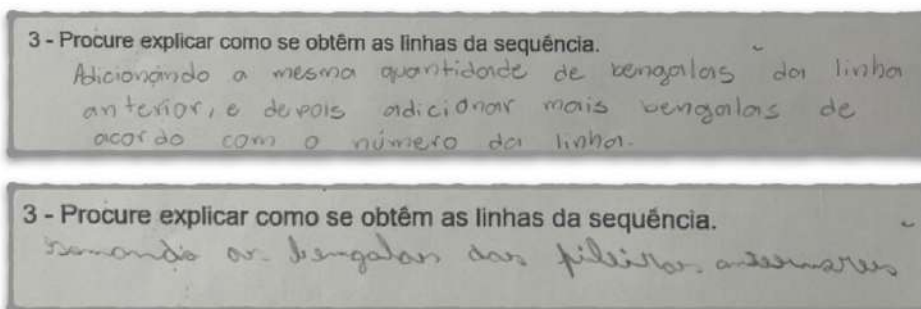 3 - Procure explicar como se obtêm as linhas da sequência.
Adicionando a mesma quantidade de bengalas da linha
anterior, e depois adicionar mais bengalas de
acordo com o número da linha.
3 - Procure explicar como se obtêm as linhas da sequência.
somando as bengalas das fileiras anteriores